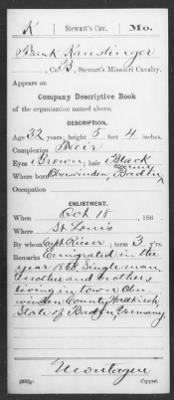 K | Stewart's Cav. | Mo.
Frank Kandinger
, Co. B, Stewart's Missouri Cavalry.
Appears on
Company Descriptive Book
of the organization named above.
DESCRIPTION.
Age 32 years; height 5 feet 4 inches.
Complexion Fair
Eyes Brown; hair Black
Where born Oberwinden, Baden
Occupation
ENLISTMENT.
When Oct 18, 186 .
Where St Louis
By whom Capt Rieser; term 3 y'rs.
Remarks Emigrated in the
year 186 . Single man,
brother and mother
living in town Ober
winden County Waldkirch
State of Baden, Germany.
Montague
Copyist.